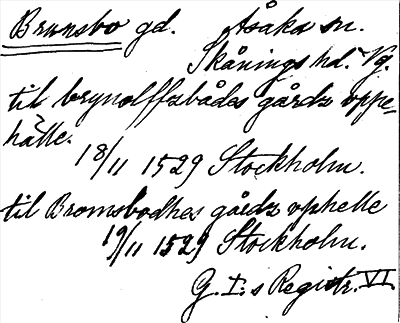 Brunsbo gd. Åsåka sn.
Skånings hd. Vg.
til brynolffzbådes gårdz oppe-
hälle.
18/11 1529 Stockholm.
til Bromsbodhes gårdz ophelle
19/11 1529 Stockholm.
G. I:s Registr. VI.